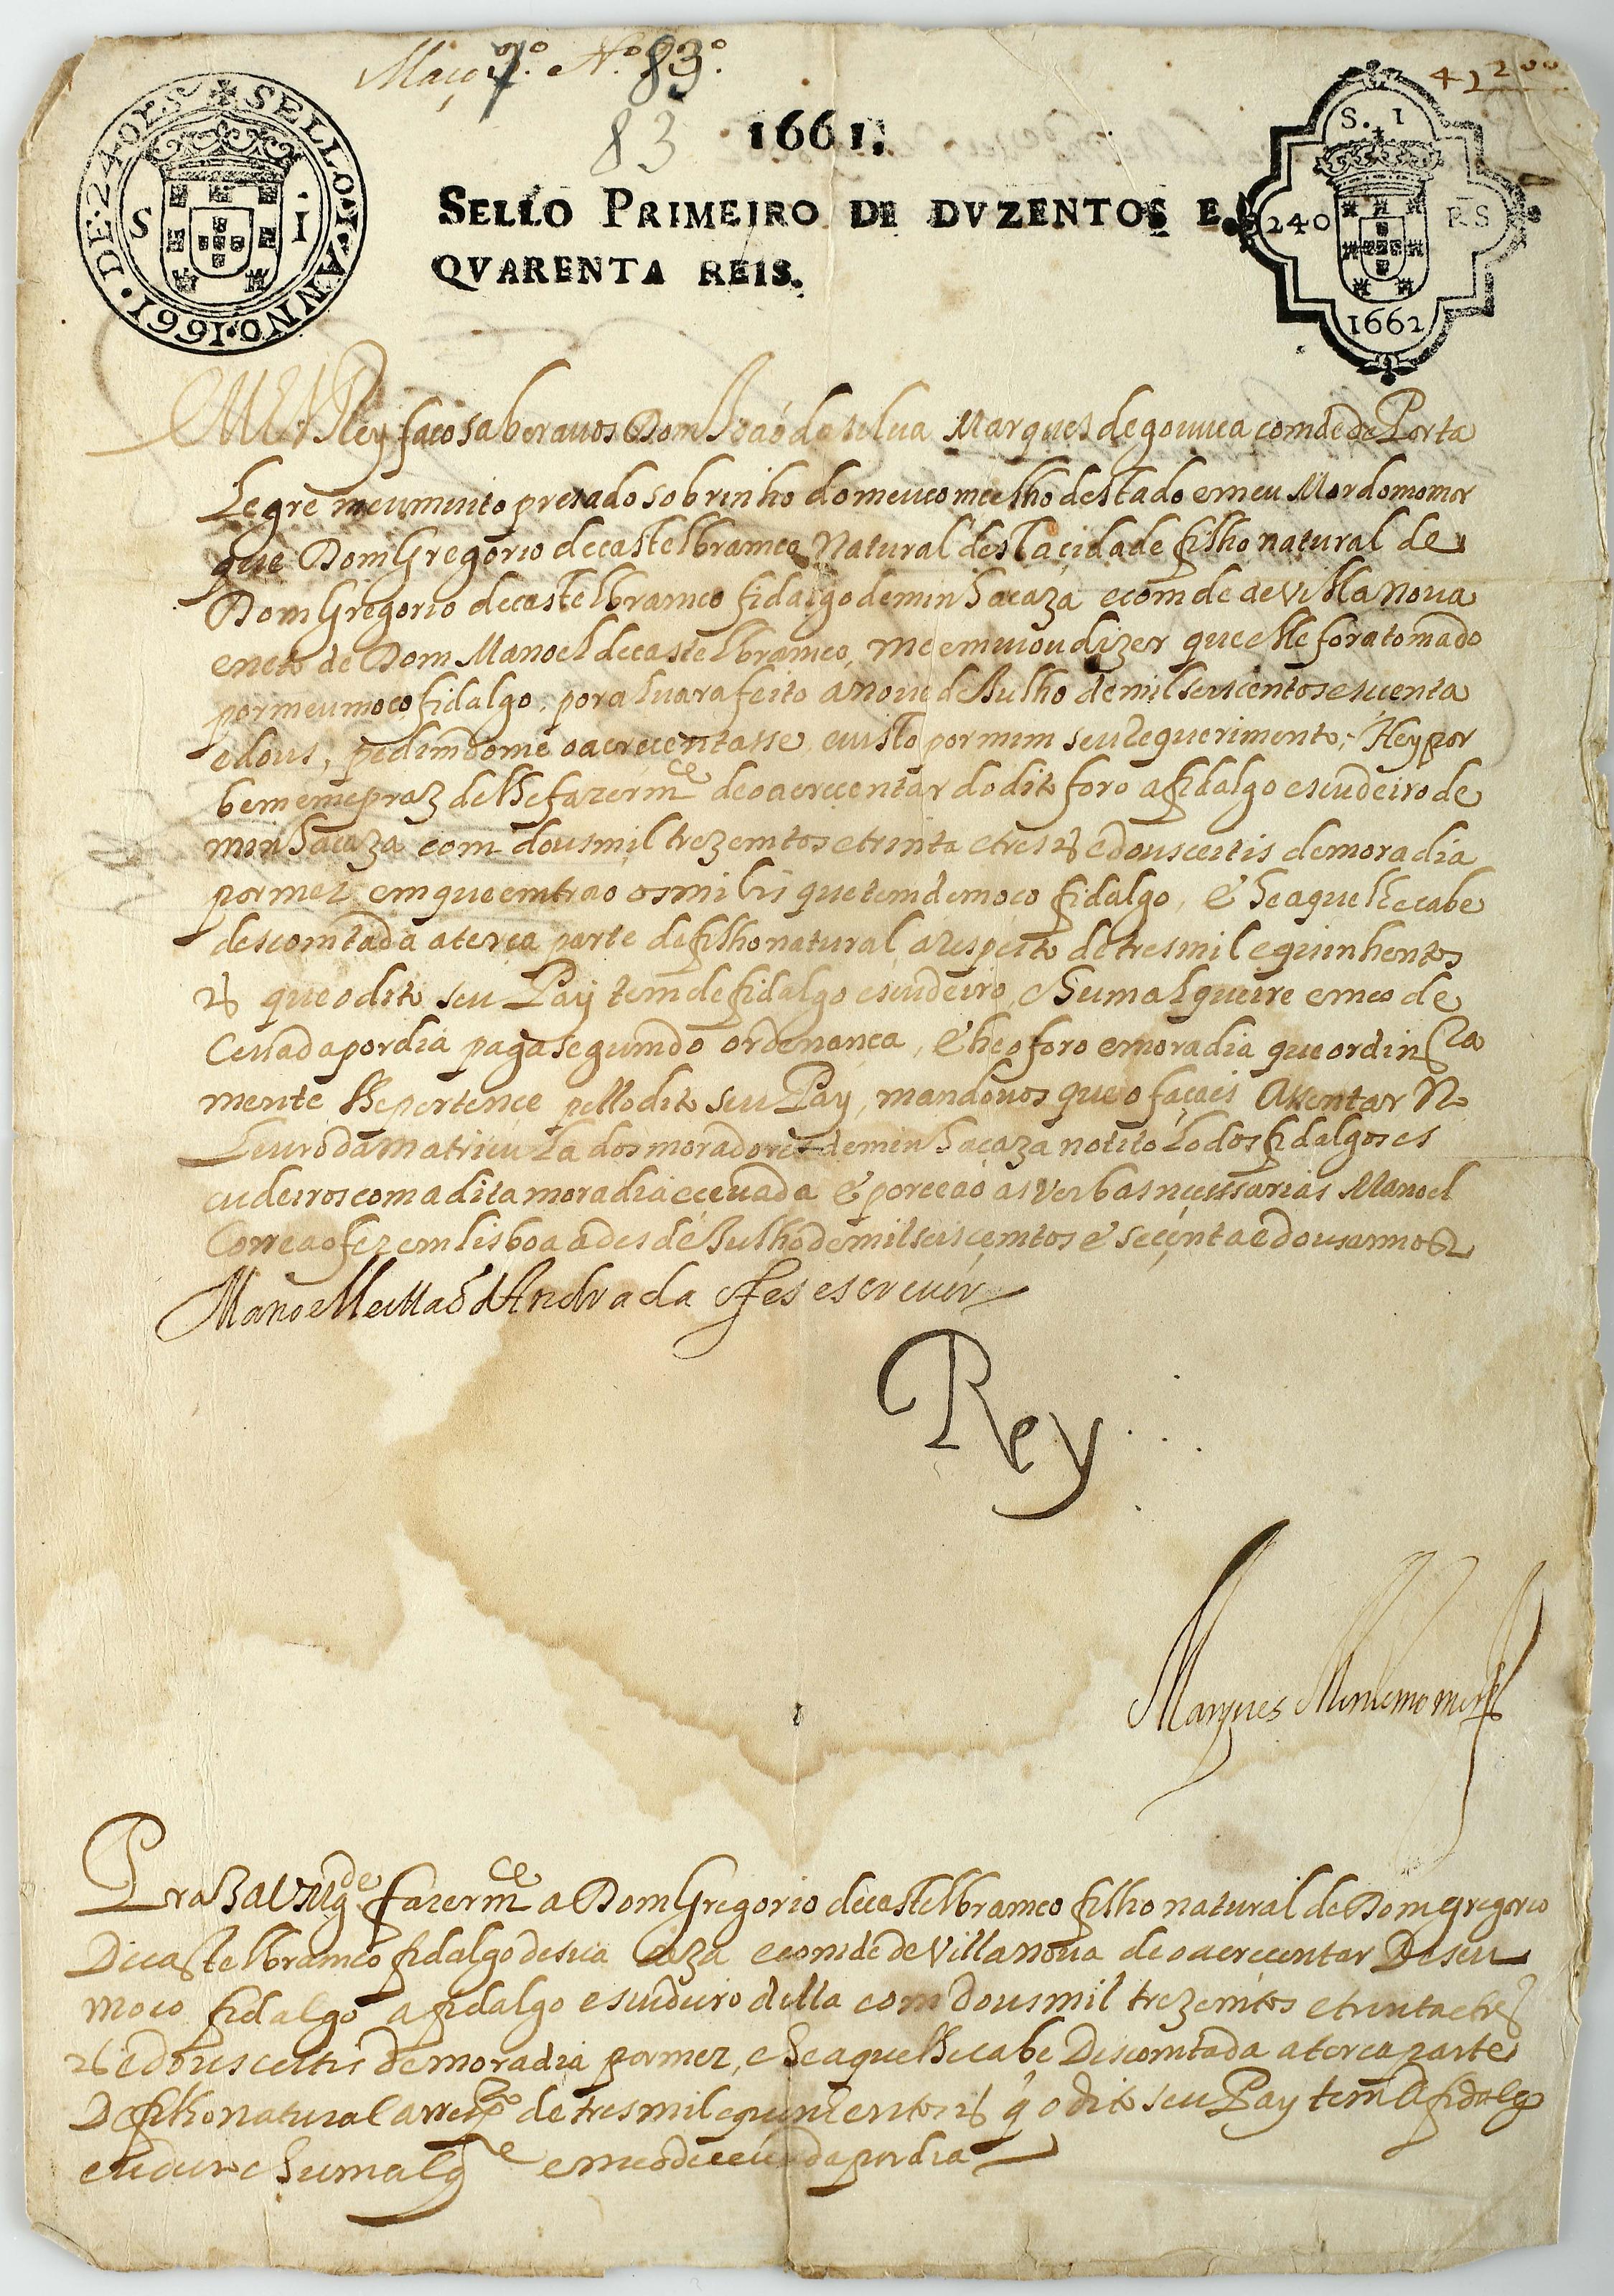 Maço 7º. Nº. 83º.
83
41200
SELLO. I. ANNO. 1661. DE: 240 RES
S I
1661.
SELLO PRIMEIRO DE DVZENTOS E
QVARENTA REIS.
S. I
240 RS
1662
Eu El Rey faco saber avos Dom Joaõ da silua Marques de gouuea comde de Porta
Legre meu muito prezado sobrinho do meu comcelho destado e meu Mordomo mor
que Dom Gregorio de castelbramco Natural desta çidade filho natural de
Dom Gregorio de castelbramco fidalgo de minha caza e comde de Villa Noua
e neto de Dom Manoel de castelbramco, me emuiou dizer que elle fora tomado
por meu moço fidalgo, por aluara feito a noue de Julho de mil seiscentos e secenta
e dous, pedimdome o acrecentasse, e uisto por mim seu Requerimento; Hey por
bem e me praz de lhe fazer m.ce de o acrecentar do dito foro a fidalgo escudeiro de
minha caza com dous mil trezemtos e trinta e tres rs e dous ceitis de moradia
por mez em que emtrao os mil rs que tem de moço fidalgo, & he a que lhe cabe
descomtada a terça parte de filho natural, a Respeito de tres mil e quinhentos
rs que o dito seu Pay tem de fidalgo escudeiro, e hum alqueire e meo de
Ceuada por dia paga segumdo ordenança, & he o foro e moradia que ordinra
mente lhe pertence pello dito seu Pay, mandouos que o façaes Assentar No
Leuro da Matricula dos moradores de minha caza no titolo dos fidalgos es
cudeiros com a dita moradia e ceuada & porceao as Verbas necessarias Manoel
Correa o fez em lisboa a des de Julho de mil seiscemtos e secenta e dous annos
Manoel Leitaõ d'Andrada o fes escreuer
Rey...
Marques Mordomo mor
Praz a V Mg.de fazer m.ce a Dom Gregorio de castelbramco filho natural de Dom gregorio
De castelbramco fidalgo de sua caza e comde de Villa noua de o acrecentar De seu
moco fidalgo a fidalgo escudeiro della com Dous mil trezemtos e trinta e tres
rs e dous ceitis de moradia por mez, e he a que lhe cabe Descomtada a terca parte
De filho natural a resp.to de tres mil e quinientos rs q̃ o dito seu Pay tem de fidalgo
escudeiro e hum alq.re e meo de ceuada por dia